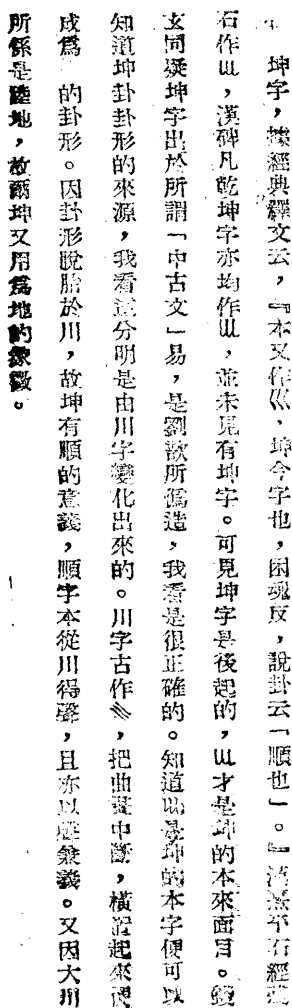 坤字，據經典釋文云，『本又作巛，坤今字也，困魂反，說卦云「順也」。』漢熹平石經
石作𡿦，漢碑凡乾坤字亦均作𡿦，並未見有坤字。可見坤字是後起的，𡿦才是坤的本來面目。錢
玄同疑坤字出於所謂「中古文」易，是劉歆所僞造，我看是很正確的。知道𡿦是坤的本字便可以
知道坤卦卦形的來源，我看這分明是由川字變化出來的。川字古作巛，把曲畫中斷，橫置起來便
成爲　的卦形。因卦形脫胎於川，故坤有順的意義，順字本從川得聲，且亦以聲兼義。又因大川
所係是陸地，故爾坤又用爲地的象徵。